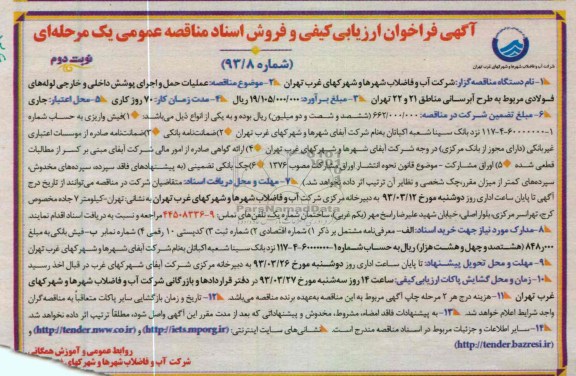 آگهی فراخوان ارزیابی کیفی و فروش اسناد مناقصه عمومی یک مرحله‌ای
(شماره ۹۳/۸)
نوبت دوم
شرکت آب و فاضلاب شهرها و شهرکهای غرب تهران
۱-نام دستگاه مناقصه‌گزار: شرکت آب و فاضلاب شهرها و شهرکهای غرب تهران ۲-موضوع مناقصه: عملیات حمل و اجرای پوشش داخلی و خارجی لوله‌های
فولادی مربوط به طرح آبرسانی مناطق ۲۱ و ۲۲ تهران ۳-مبلغ برآورد: ۱۹/۱۰۵/۰۰۰/۰۰۰ ریال ۴-مدت زمان کار: ۷۰ روز کاری ۵-محل اعتبار: جاری
۶-مبلغ تضمین شرکت در مناقصه: ۶۶۲/۰۰۰/۰۰۰ (ششصد و شصت و دو میلیون) ریال بوده و به یکی از انواع ذیل می‌باشد: ۱)فیش واریزی به حساب شماره
نزد بانک سینا شعبه اکباتان بنام شرکت آبفای شهرها و شهرکهای غرب تهران ۲)ضمانتنامه بانکی ۳)ضمانتنامه صادره از موسسات اعتباری
غیربانکی (دارای مجوز از بانک مرکزی) در وجه شرکت آبفای شهرها و شهرکهای غرب تهران ۴) ارائه گواهی صادره از امور مالی شرکت آبفای مبنی بر کسر از مطالبات
قطعی شده ۵) اوراق مشارکت - موضوع قانون نحوه انتشار اوراق مشارکت مصوب ۱۳۷۶ ۶)چک بانکی تضمینی (به پیشنهادهای فاقد سپرده، سپرده‌های مخدوش،
سپرده‌های کمتر از میزان مقرر، چک شخصی و نظایر آن ترتیب اثر داده نخواهد شد) ۷-مهلت و محل دریافت اسناد: متقاضیان شرکت در مناقصه می‌توانند از تاریخ درج
آگهی تا پایان ساعات اداری روز دوشنبه مورخ ۹۳/۰۳/۱۲ به دبیرخانه مرکزی شرکت آب و فاضلاب شهرها و شهرکهای غرب تهران به نشانی: تهران-کیلومتر ۷ جاده مخصوص
کرج، تهرانسر مرکزی، بلوار اصلی، خیابان شهید علیرضا راسخ مهر (یکم غربی) ساختمان شماره یک تلفن‌های تماس: ۹-۴۴۵۰۸۳۳۶ مراجعه و نسبت به دریافت اسناد اقدام نمایند.
۸-مدارک مورد نیاز جهت خرید اسناد: الف-معرفی‌نامه مشتمل بر ذکر ۱) شماره اقتصادی ۲) شماره ثبت ۳) کدپستی ۱۰ رقمی ۴) شماره نمابر ب-فیش بانکی به مبلغ
۸۴۸/۰۰۰ (هشتصد و چهل و هشت هزار) ریال به حساب شماره نزد بانک سینا شعبه اکباتان بنام شرکت آبفای شهرها و شهرکهای غرب تهران
۹-مهلت و محل تحویل پیشنهاد: تا پایان ساعات اداری روز دوشنبه مورخ ۹۳/۰۳/۲۶ به دبیرخانه مرکزی شرکت آبفای شهرها و شهرکهای غرب در قبال اخذ رسید
۱۰-زمان و محل گشایش پاکات ارزیابی کیفی: ساعت ۱۴ روز سه‌شنبه مورخ ۹۳/۰۳/۲۷ در دفتر قراردادها و بازرگانی شرکت آب و فاضلاب شهرها و شهرکهای
غرب تهران ۱۱-هزینه درج هر ۲ مرحله چاپ آگهی مربوط به این مناقصه به‌عهده برنده مناقصه می‌باشد ۱۲-تاریخ و زمان بازگشایی سایر پاکات متعاقباً به مناقصه گران
واجد شرایط اعلام خواهد شد. ۱۳-به پیشنهادات فاقد امضاء، مشروط، مخدوش و پیشنهاداتی که بعد از مدت مقرر این آگهی واصل شود، مطلقاً ترتیب اثر داده نخواهد شد
۱۴-سایر اطلاعات و جزئیات مربوط در اسناد مناقصه مندرج است. نشانی‌های سایت اینترنتی: (http://iets.mporg.ir) و (http://tender.nww.co.ir) و
(http://tender.bazresi.ir)
روابط عمومی و آموزش همگانی
شرکت آب و فاضلاب شهرها و شهرکهای